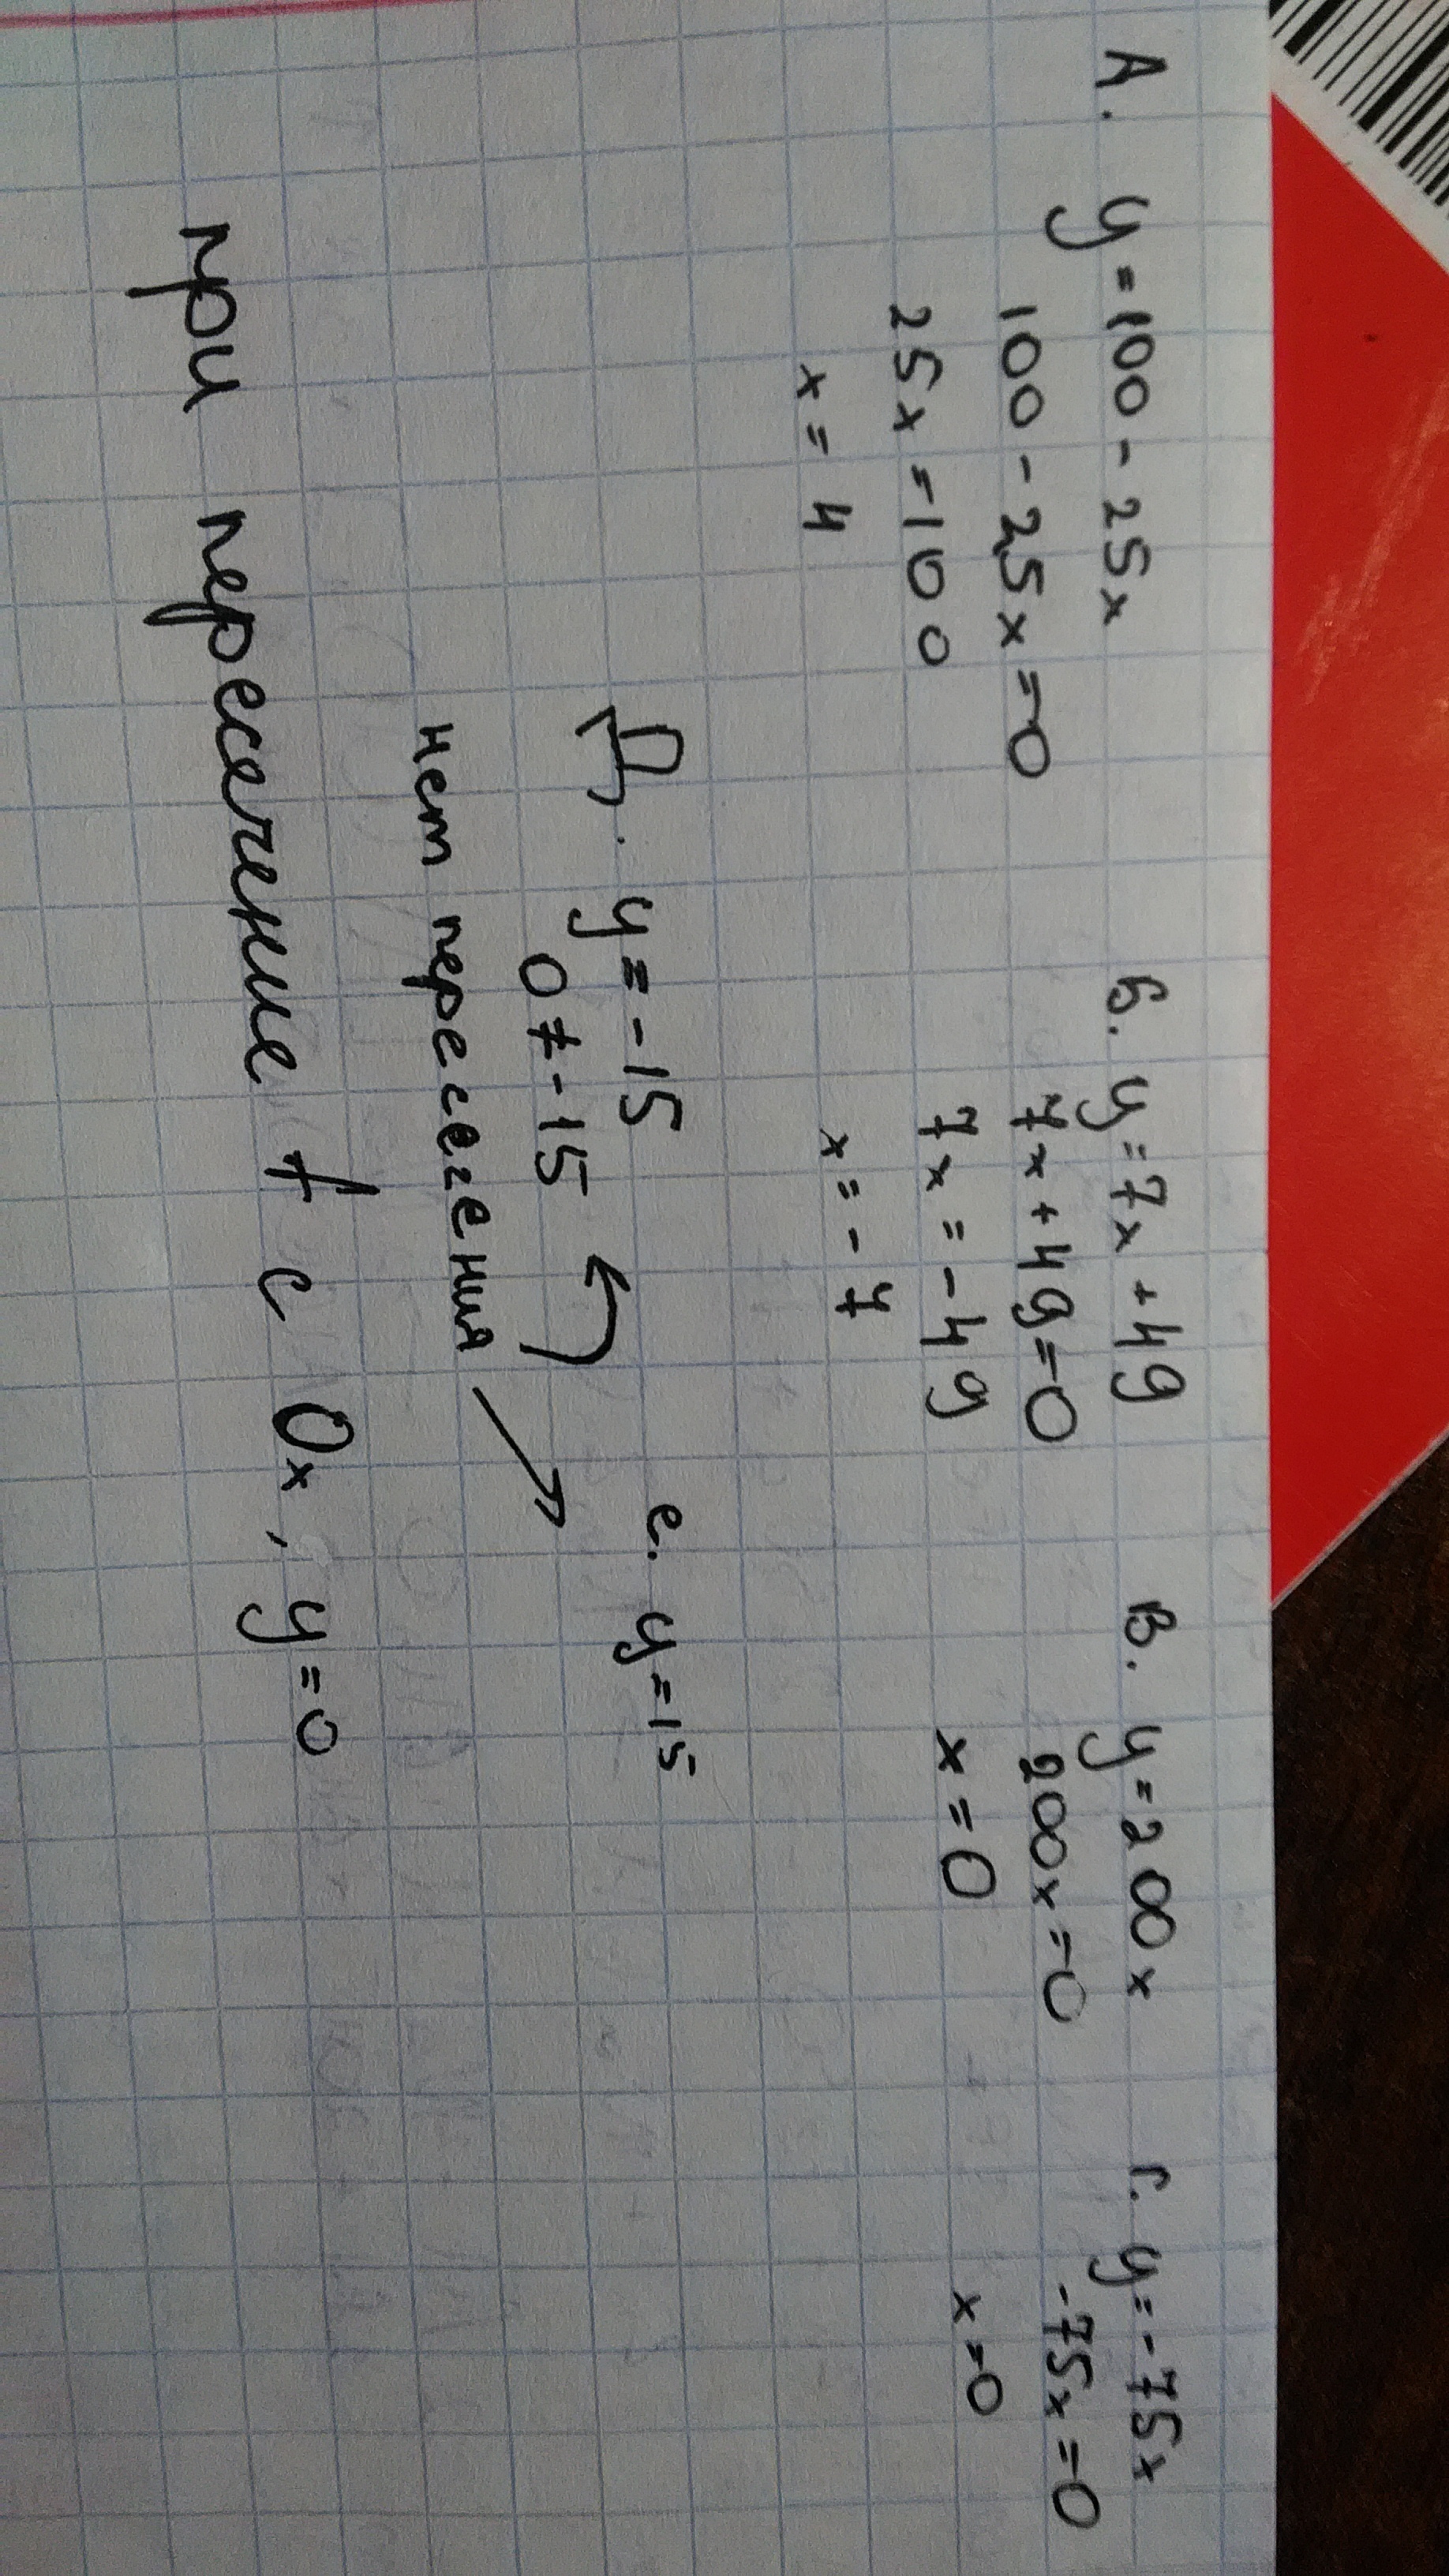 А. y=100-25x
100-25x=0
25x=100
x=4
Б. y=7x+49
7x+49=0
7x=-49
x=-7
В. y=200x
200x=0
x=0
Г. y=-75x
-75x=0
x=0
Д. y=-15
0≠-15
нет пересегения
е. y=15
при пересечение f с Ox, y=0